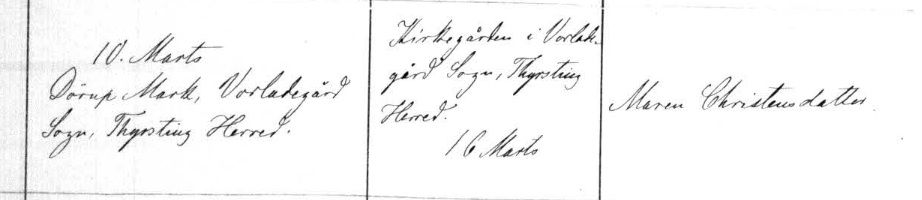 10. Marts
Dörup Mark, Vorladegård
Sogn, Thyrsting Herred.
Kirkegården i Vorlade-
gård Sogn, Thyrsting
Herred.
16 Marts
Maren Christensdatter.